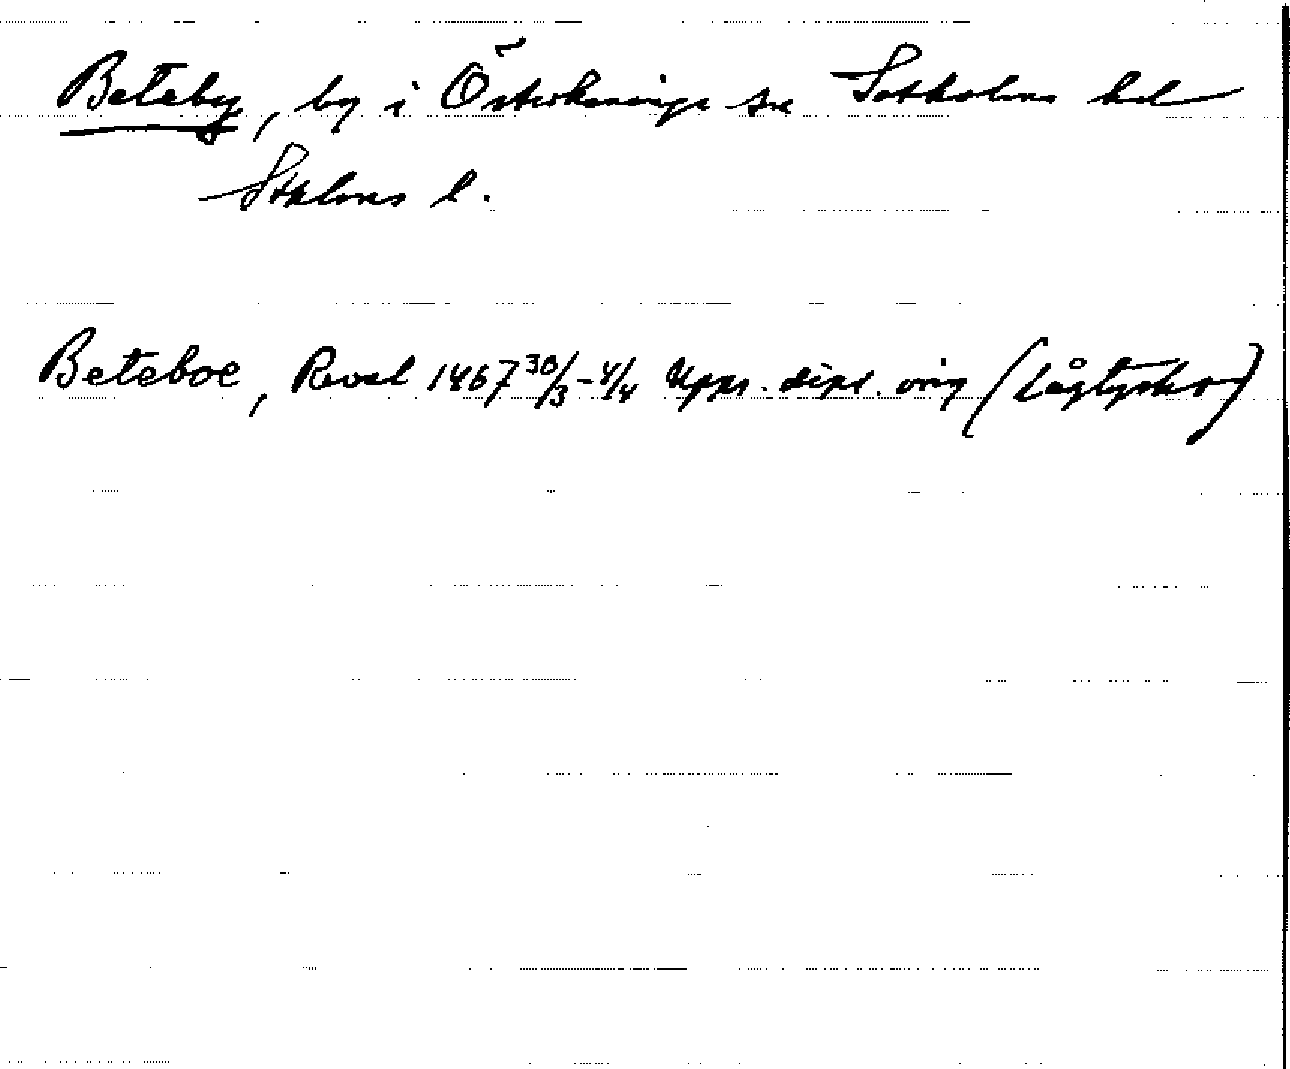 Beteby, by i Österhaninge sn Sotholms hd
Sthlms l.
Beteboe, Reval 1467 30/3-4/4 Upps. dipl. orig (Lågtyska)